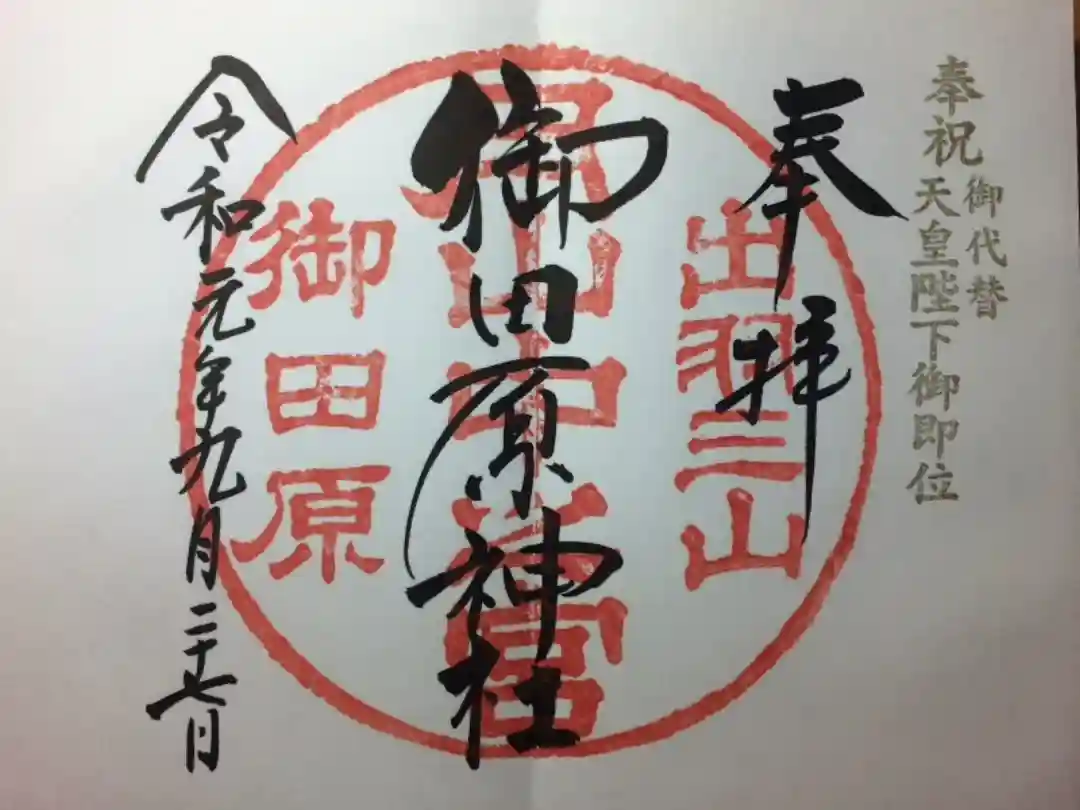 奉祝
御代替
天皇陛下御即位
奉拝
出羽三山
御田原神社
月山中之宮
御田原
令和元年九月二十七日